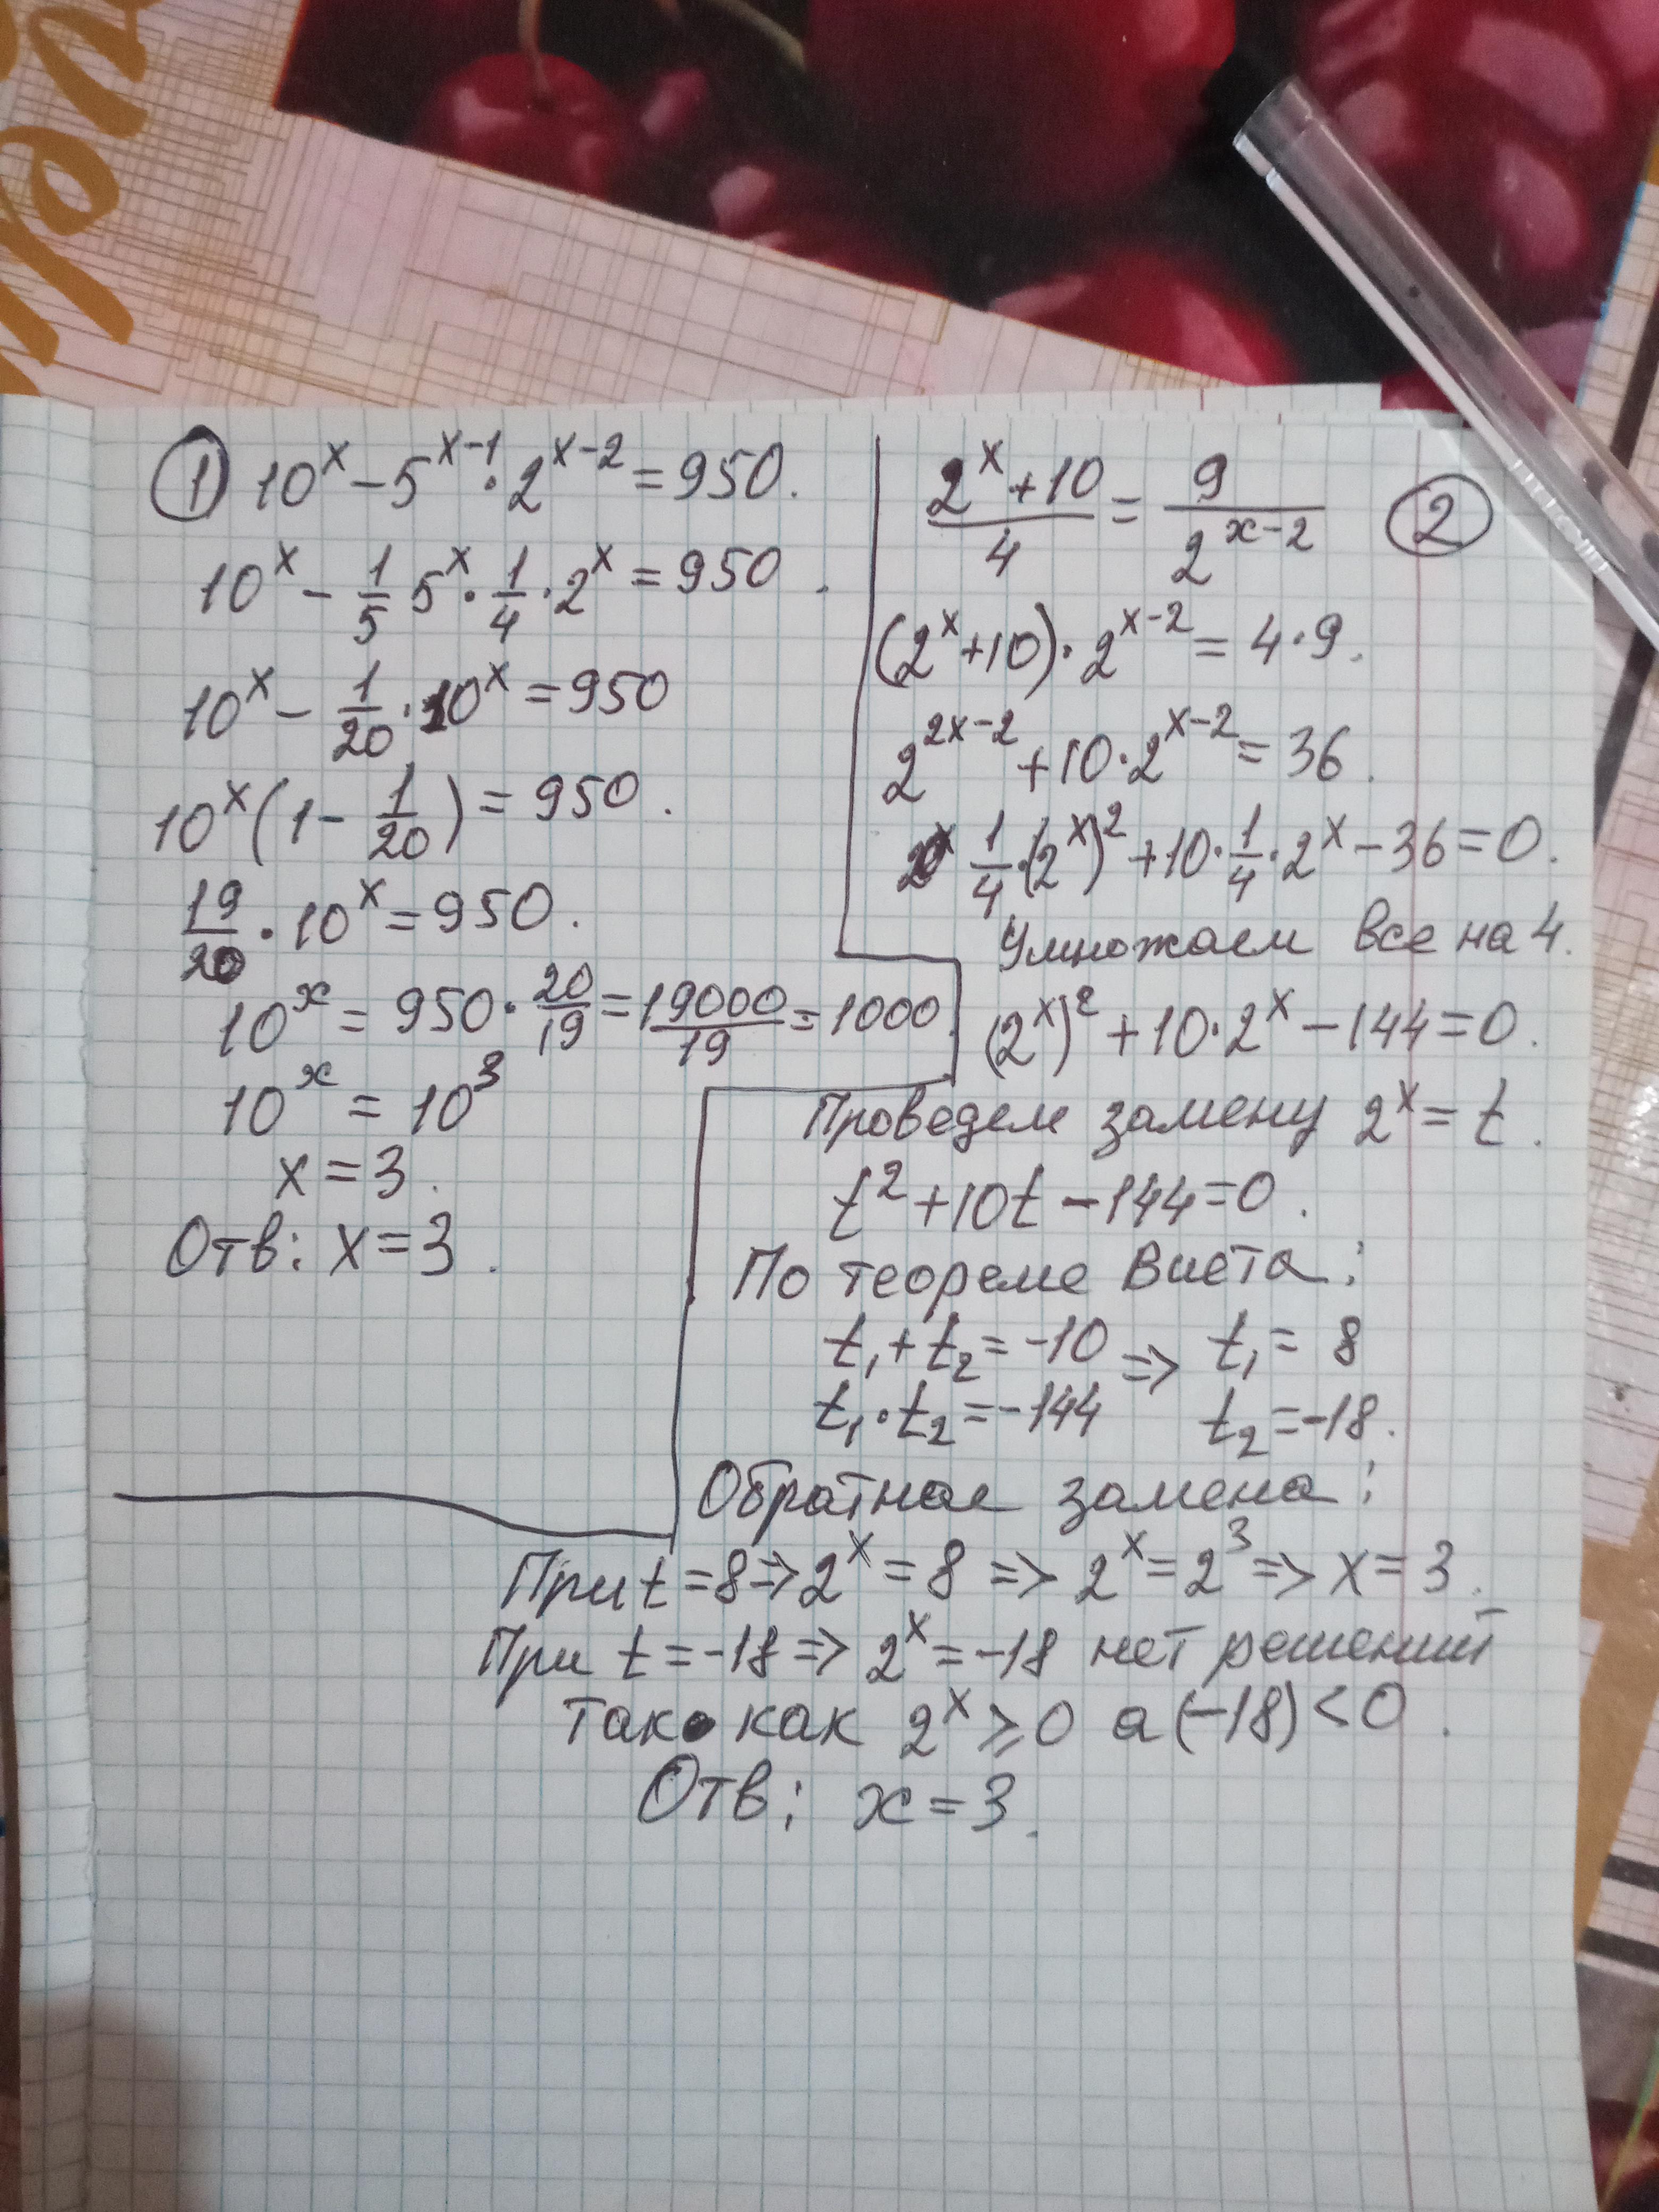 ① 10^x − 5^(x−1) · 2^(x−2) = 950.
10^x − 1/5 5^x · 1/4 · 2^x = 950.
10^x − 1/20 · 10^x = 950
10^x (1 − 1/20) = 950.
19/20 · 10^x = 950.
10^x = 950 · 20/19 = 19000/19 = 1000.
10^x = 10^3
x = 3.
Отв: x = 3.
(2^x + 10)/4 = 9/2^(x−2) ②
(2^x + 10) · 2^(x−2) = 4 · 9.
2^(2x−2) + 10 · 2^(x−2) = 36.
1/4 · (2^x)^2 + 10 · 1/4 · 2^x − 36 = 0.
Умножаем все на 4.
(2^x)^2 + 10 · 2^x − 144 = 0.
Проведем замену 2^x = t.
t^2 + 10t − 144 = 0.
По теореме Виета:
t₁ + t₂ = −10 => t₁ = 8
t₁ · t₂ = −144 t₂ = −18.
Обратная замена:
При t = 8 => 2^x = 8 => 2^x = 2^3 => x = 3.
При t = −18 => 2^x = −18 нет решений
так как 2^x ⩾ 0 а (−18) < 0.
Отв: x = 3.